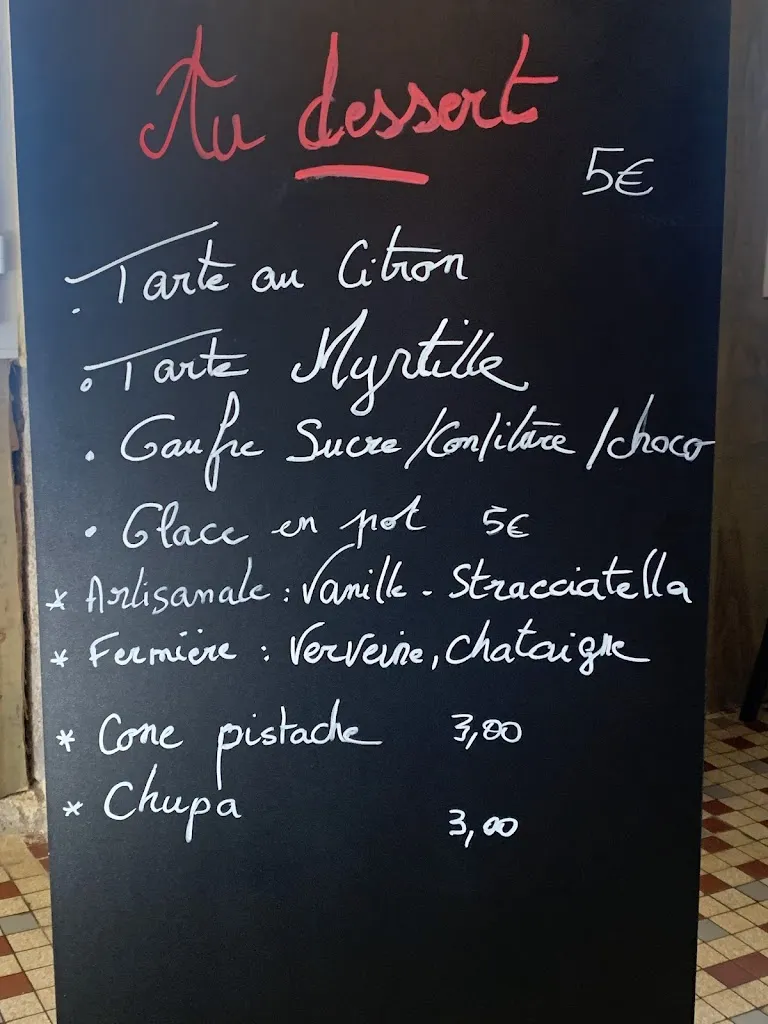 Au dessert
5€
. Tarte au Citron
. Tarte Myrtille
. Gaufre Sucre/Confiture/choco
. Glace en pot 5€
* Artisanale : Vanille - Stracciatella
* Fermière : Verveine, Chataigne
* Cone pistache 3,00
* Chupa 3,00